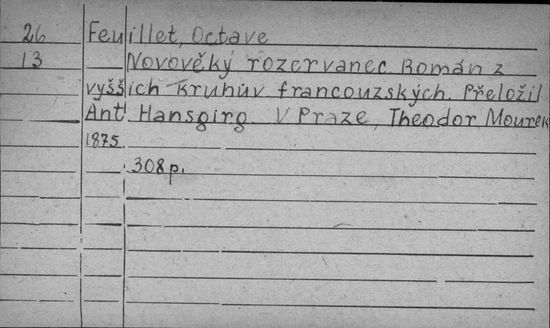 26 Feuillet, Octave
13 Novověký rozervanec. Román z
vyšších kruhův francouzských. Přeložil
Ant. Hansgirg. V Praze, Theodor Mourek
1875.
308p.